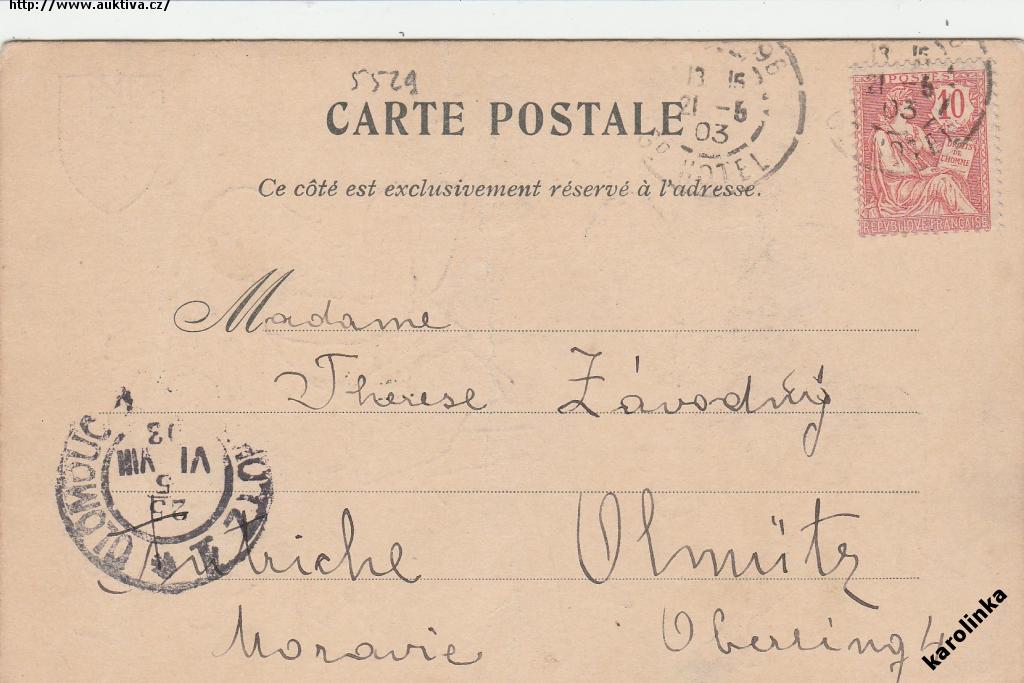 http://www.auktiva.cz/
5529
CARTE POSTALE
Ce côté est exclusivement réservé à l'adresse.
13 15
21 -5
03
HOTEL
13 15
21 -5
03
POSTES
10
DROITS
DE
L'HOMME
REPVBLIQUE FRANÇAISE
Madame
Thérese Závodný
OLOMOUC
23
5
VI VIII
03
Autriche Olmütz
Moravie Oberring 4
karolinka